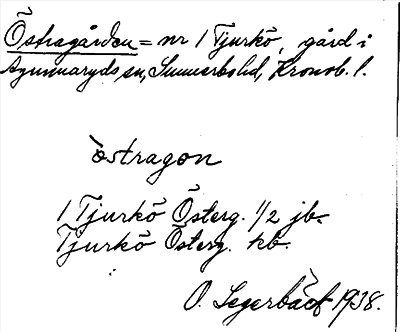 Östragården = nr 1 Tjurkö, gård i
Agunnaryds sn, Sunnerbo hd, Kronob. l.
òstragon
1 Tjurkö Österg. 1/2 jb.
Tjurkö Österg. kb.
O. Segerbäck 1938.